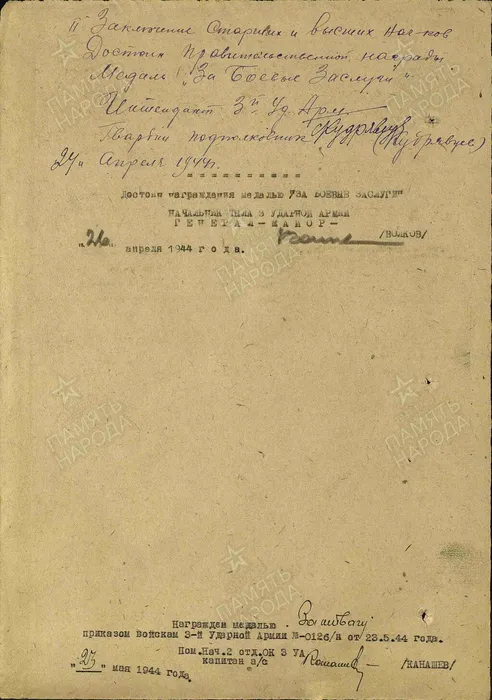 II Заключение Старших и высших Нач-ков
Достоин Правительственной награды
Медали „За Боевые Заслуги"
Интендант 3й Уд. Арм.
Гвардии подполковник Кудрявцев (Кудрявцев)
24" Апреля 1944г.
Достоин награждения медалью "ЗА БОЕВЫЕ ЗАСЛУГИ"
НАЧАЛЬНИК ТЫЛА 3 УДАРНОЙ АРМИИ
ГЕНЕРАЛ-МАЙОР-
/ВОЛКОВ/
"26" апреля 1944 года.
Награжден медалью
приказом войскам 3-й Ударной Армии №-0126/н от 23.5.44 года.
Пом.Нач.2 отд.ОК 3 УА
капитан а/с /КАНАШЕВ/
"23" мая 1944 года.
ПАМЯТЬ НАРОДА